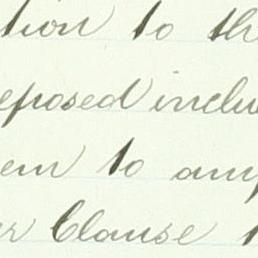 tion to th
eposed inclu
em to any
er Clause t